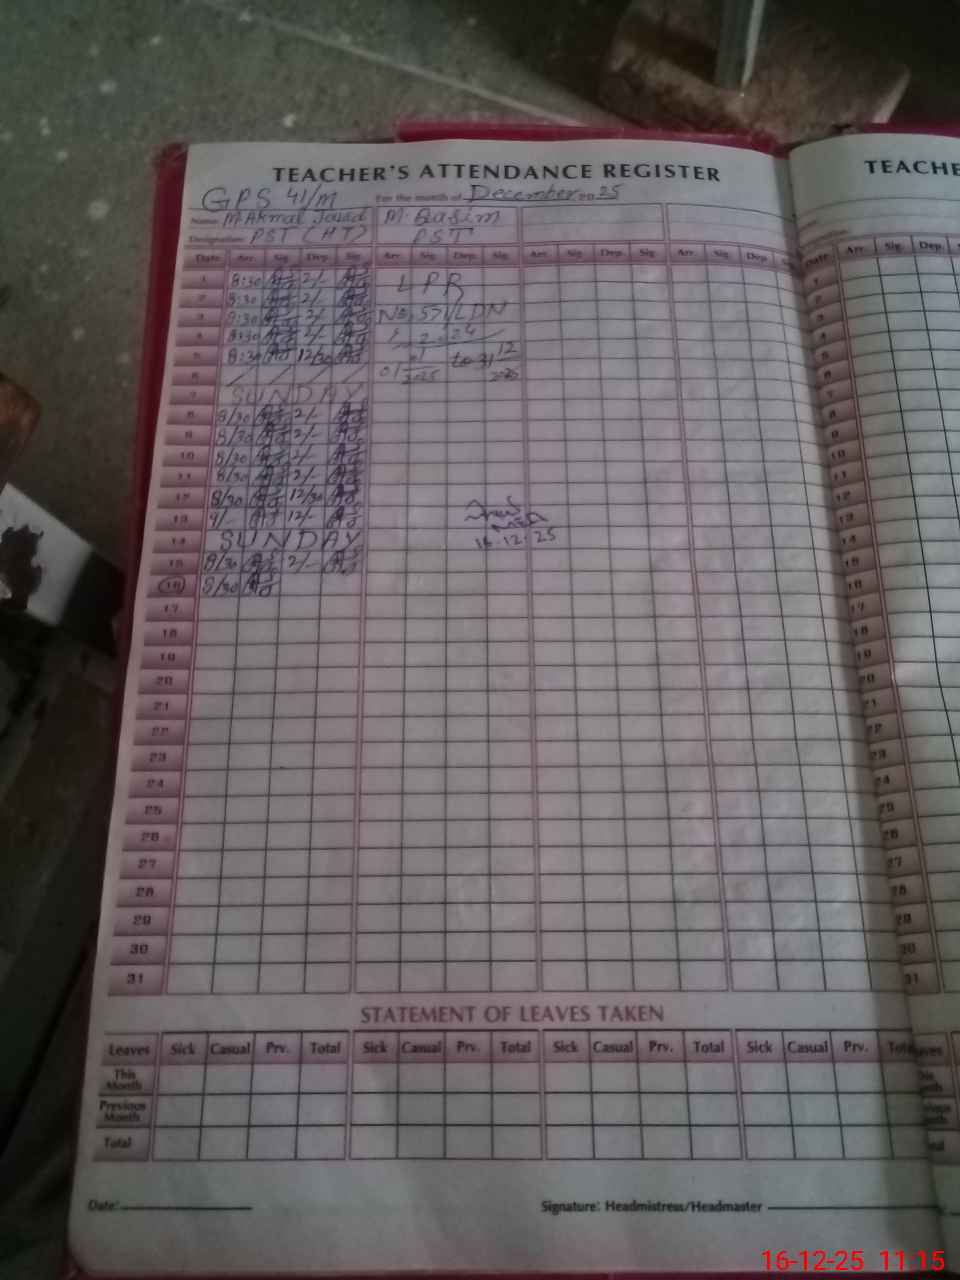 TEACHER'S ATTENDANCE REGISTER
GPS 41/M For the month of December 20 25
Name: M. Akmal Javed M. Qasim
Designation: PST (HT) PST
Date Arr. Sig. Dep. Sig. Arr. Sig. Dep. Sig. Arr. Sig. Dep. Sig. Arr. Sig. Dep. Sig.
1 8:30 2/- LPR
2 8:30 2/-
3 8:30 2/- No. 571/LDN
4 8:30 2/-
5 8:30 12/30 to 31 12
6 / / / / 01 2025 2025
7 SUNDAY
8 8/30 2/-
9 8/30 2/-
10 8/30 2/-
11 8/30 2/-
12 8/30 12/30
13 9/- 12/-
14 SUNDAY 16-12-25
15 8/30 2/-
16 8/30
17
18
19
20
21
22
23
24
25
26
27
28
29
30
31
STATEMENT OF LEAVES TAKEN
Leaves Sick Casual Prv. Total Sick Casual Prv. Total Sick Casual Prv. Total Sick Casual Prv. Total
This Month
Previous Month
Total
Date: Signature: Headmistress/Headmaster
TEACHE
Date Arr. Sig. Dep.
1
2
3
4
5
6
7
8
9
10
11
12
13
14
15
16
17
18
19
20
21
22
23
24
25
26
27
28
29
30
31
16-12-25 11 15